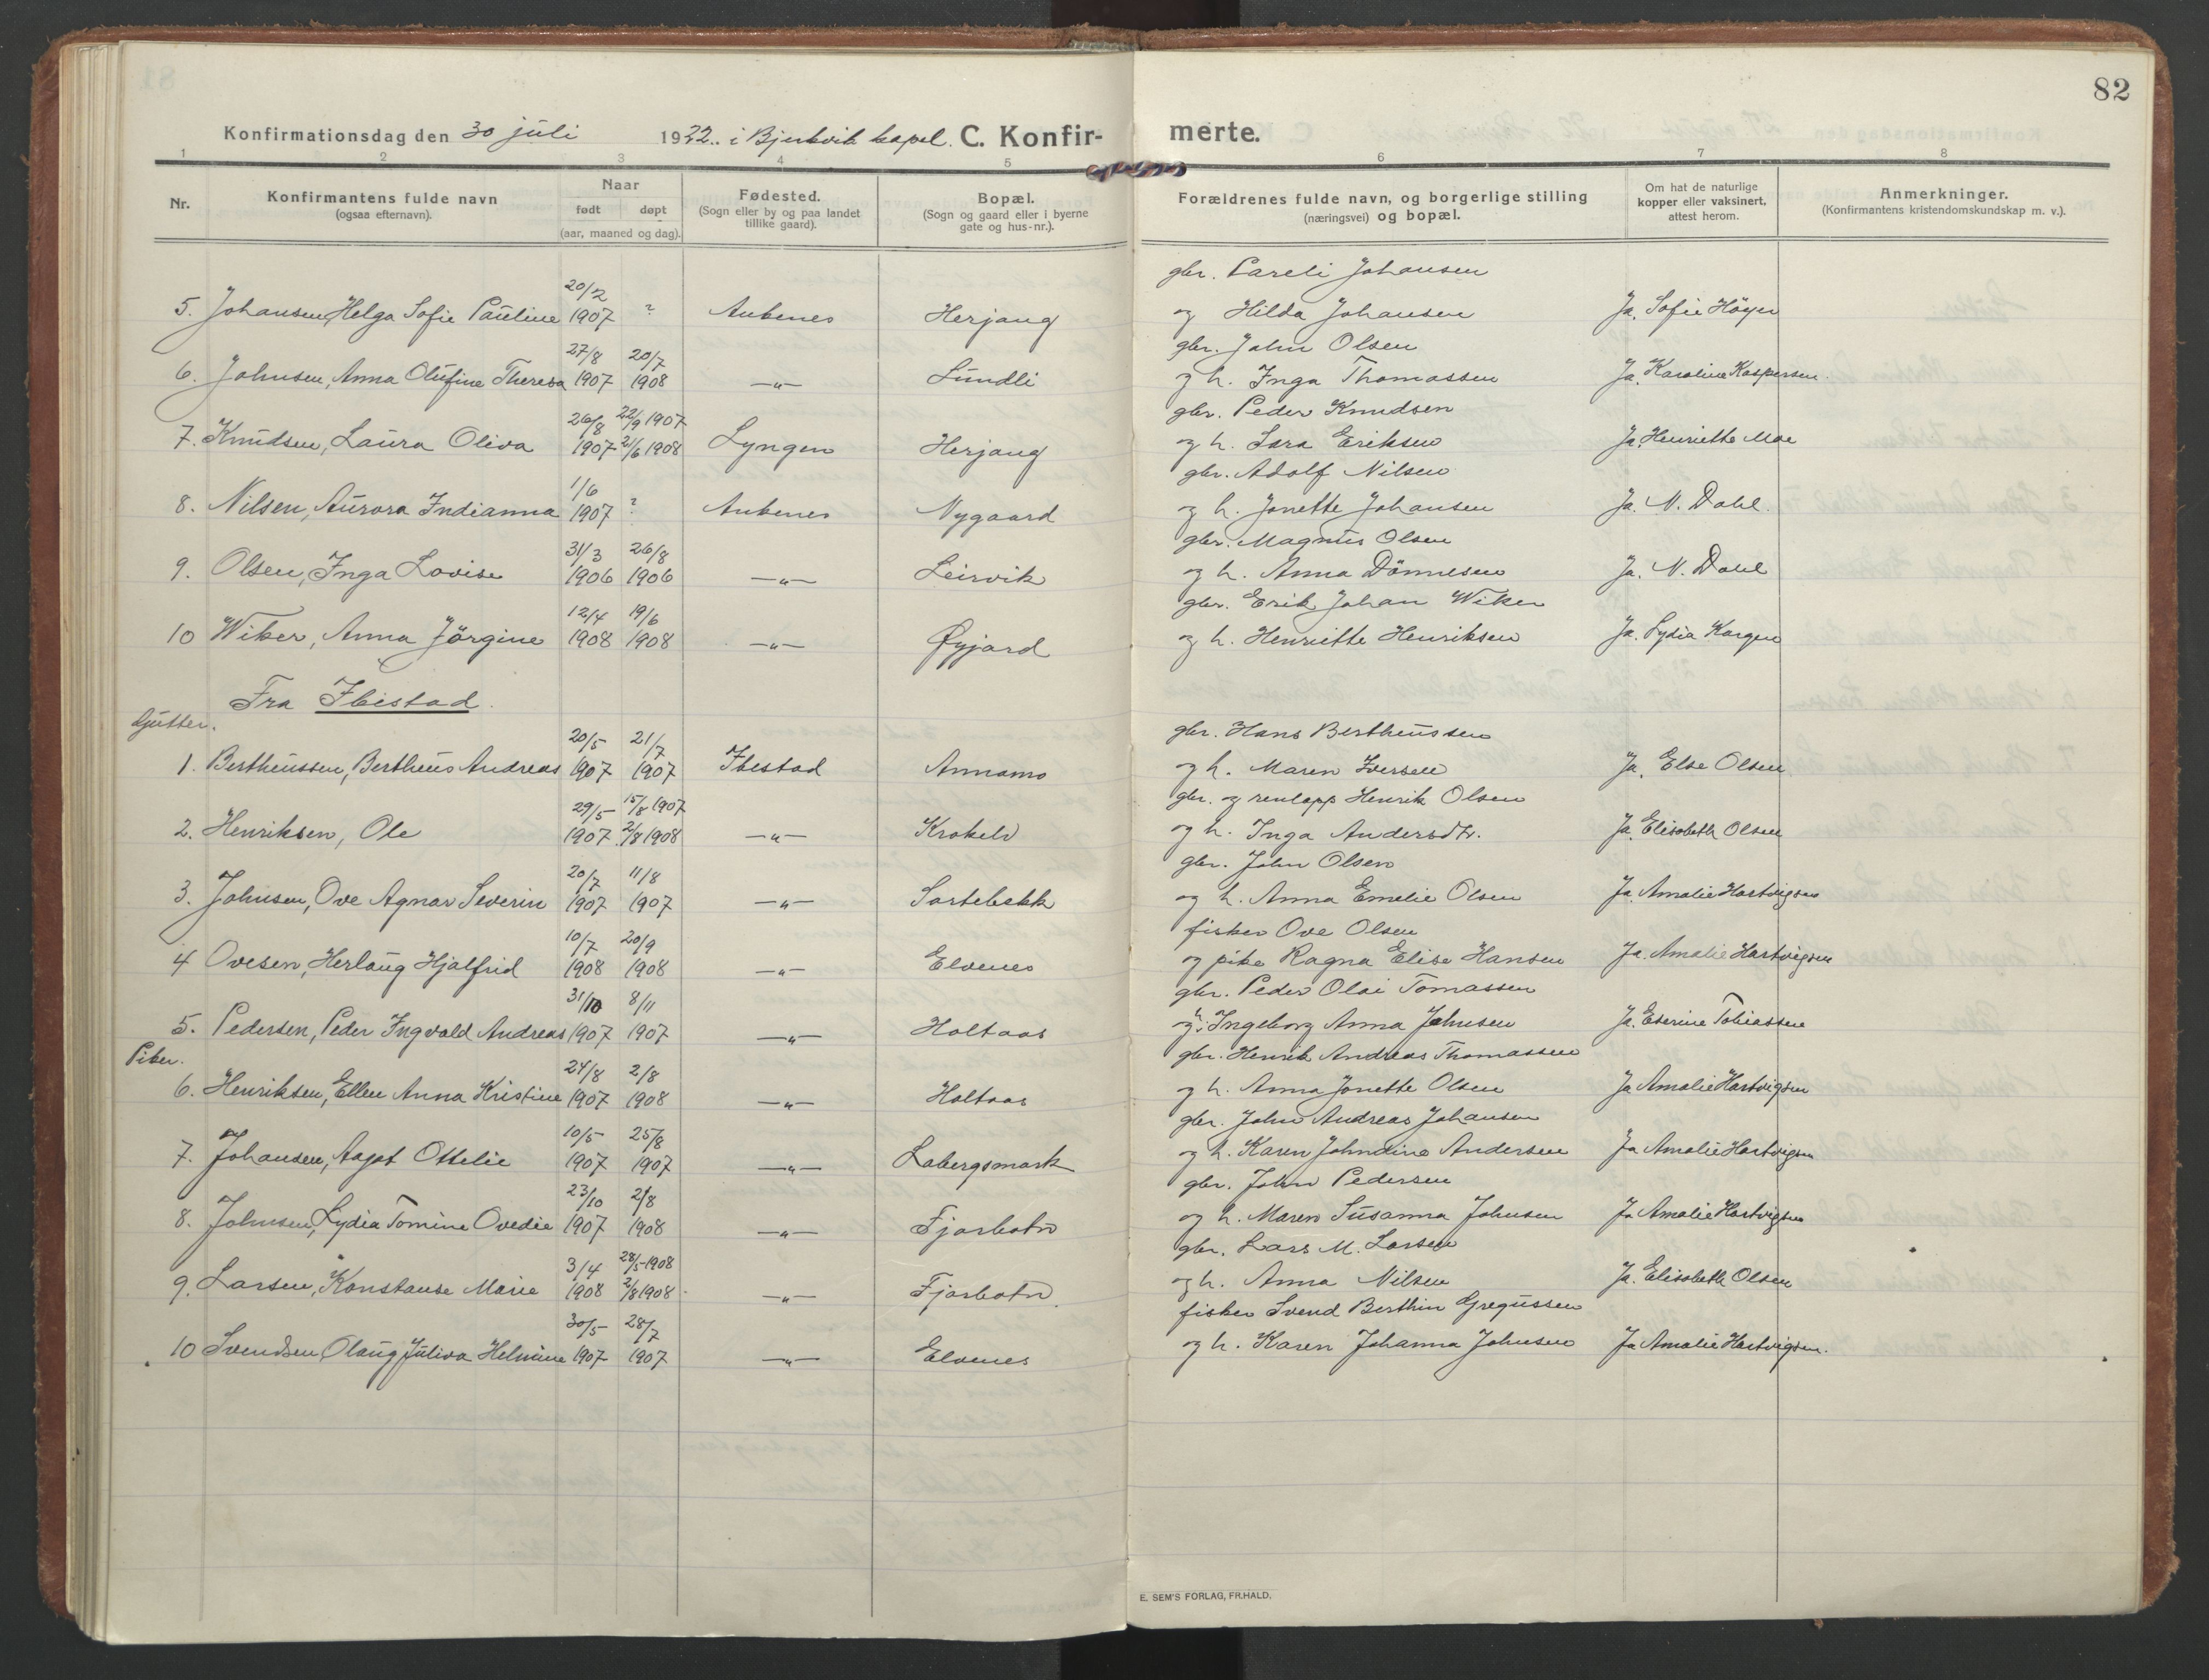 82
Konfirmationsdag den 30 juli 1922. i Bjerkvik kapel. C. Konfirmerte.
1 2 3 4 5 6 7 8
Nr.
Konfirmantens fulde navn
(ogsaa efternavn).
Naar
født døpt
(aar, maaned og dag).
Fødested.
(Sogn eller by og paa landet
tillike gaard).
Bopæl.
(Sogn og gaard eller i byerne
gate og hus-nr.).
Forældrenes fulde navn, og borgerlige stilling
(næringsvei) og bopæl.
Om hat de naturlige
kopper eller vaksinert,
attest herom.
Anmerkninger.
(Konfirmantens kristendomskundskap m. v.).
20/2 gbr. Pareli Johansen
5. Johansen, Helga Sofie Pauline 1907 ? Ankenes Herjang og Hilda Johansen Ja. Sofie Höyer
27/8 20/7 gbr. John Olsen
6. Johnsen, Anna Olufine Theresa 1907 1908 —„— Lundli og h. Inga Thomassen Ja. Karoline Kaspersen.
26/8 22/9 1907 gbr. Peder Knudsen
7. Knudsen, Laura Oliva 1907 21/6 1908 Lyngen Herjang og h. Sara Eriksen Ja. Henriette Moe
1/6 gbr. Adolf Nilsen
8. Nilsen, Aurora Indianna 1907 ? Ankenes Nygaard og h. Jonette Johansen Ja. N. Dahl.
31/3 26/8 gbr. Magnus Olsen
9. Olsen, Inga Lovise 1906 1906 —„— Leirvik og h. Anna Dönnesen Ja. N. Dahl
12/4 19/6 gbr. Erik Johan Wiker
10 Wiker, Anna Jörgine 1908 1908 —„— Øyjord og h. Henriette Henriksen Ja. Lydia Kargen
Fra Ibestad.
Gutter.
20/5 21/7 gbr. Hans Bertheussen
1. Bertheussen, Bertheus Andreas 1907 1907 Ibestad Annamo og h. Maren Iversen Ja. Else Olsen
29/5 15/8 1907 gbr. og renlapp Henrik Olsen
2. Henriksen, Ole 1907 2/8 1908 —„— Krokelv og h. Inga Andersdtr. Ja. Elisabeth Olsen
20/7 11/8 gbr. John Olsen
3. Johnsen, Ove Agnar Severin 1907 1907 —„— Sortebekk og h. Anna Emelie Olsen Ja. Amalie Hartvigsen
10/7 20/9 fisker Ove Olsen
4 Ovesen, Herlaug Hjalfrid 1908 1908 —„— Elvenes og pike Ragna Elise Hansen Ja. Amalie Hartvigsen
31/10 8/11 gbr. Peder Olai Tomassen
5. Pedersen, Peder Ingvald Andreas 1907 1907 —„— Holtaas og h. Ingeborg Anna Johnsen Ja. Eserine Tobiassen
Piker.
24/8 2/8 gbr. Henrik Andreas Thomassen
6. Henriksen, Ellen Anna Kristine 1907 1908 —„— Holtaas og h. Anna Jonette Olsen Ja Amalie Hartvigsen
10/5 25/8 gbr. John Andreas Johansen
7. Johansen, Aagot Ottelie 1907 1907 —„— Labergsmark og h. Karen Johndine Andersen Ja Amalie Hartvigsen
23/10 2/8 gbr. John Pedersen
8. Johnsen, Lydia Tomine Ovedie 1907 1908 —„— Fjorbotn og h. Maren Susanna Johnsen Ja Amalie Hartvigsen
3/4 28/5 1908 gbr. Lars M. Larsen
9. Larsen, Konstanse Marie 1908 2/8 1908 —„— Fjorbotn. og h. Anna Nilsen Ja. Elisabeth Olsen
30/5 28/7 fisker Svend Berthin Gregussen
10 Svendsen Olaug Juliva Helmine 1907 1907 —„— Elvenes og h. Karen Johanna Johnsen Ja Amalie Hartvigsen.
E. SEM'S FORLAG, FR.HALD.